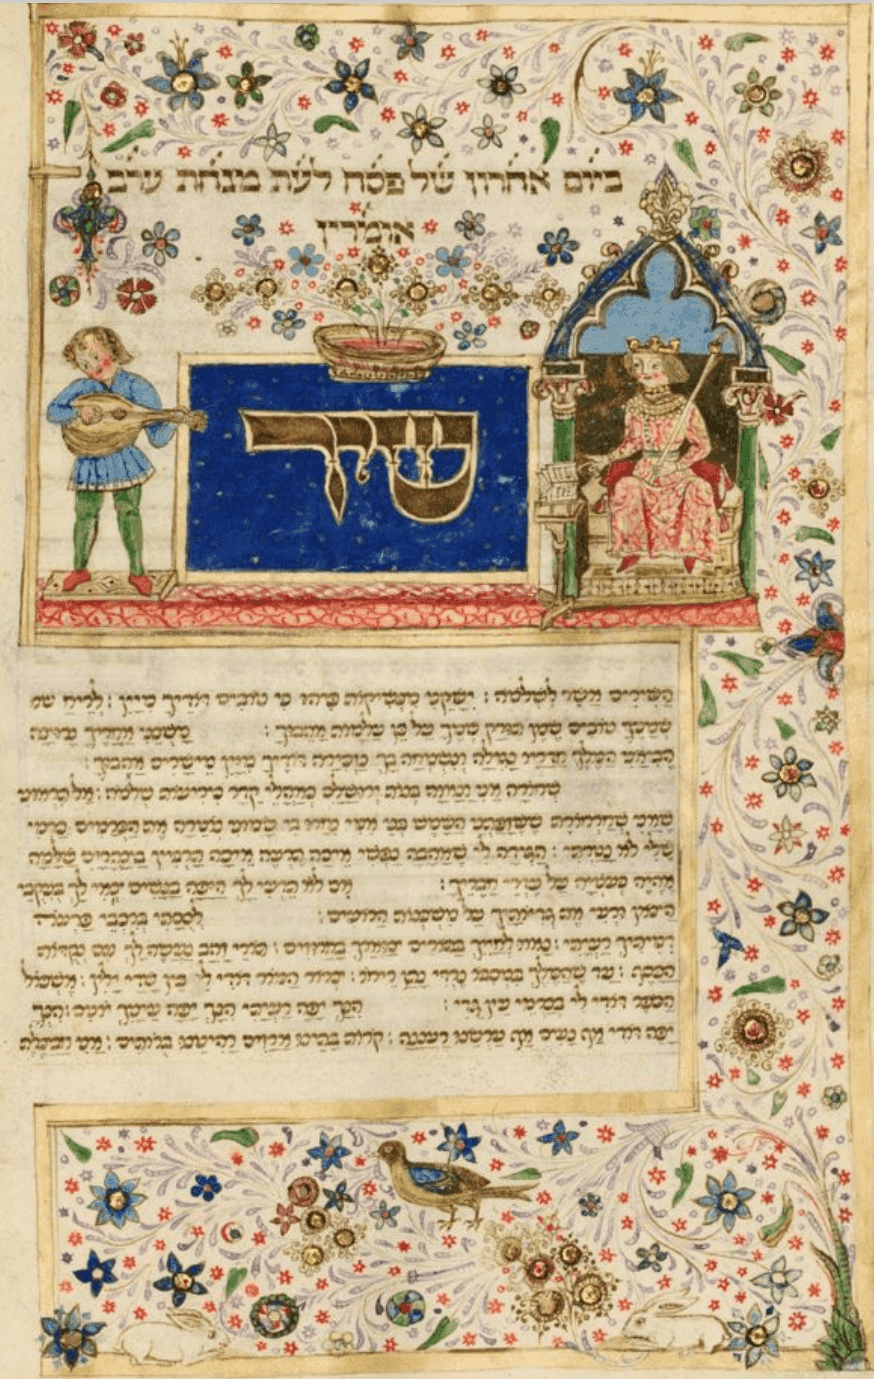 ביום אחרון של פסח לעת מנחת ערב
אומרין
שיר
השירים אשר לשלמה : ישקני מנשיקות פיהו כי טובים דודיך מיין : לריח שמ
שמניך טובים שמן תורק שמך על כן עלמות אהבוך : משכני אחריך נרוצה
הביאני המלך חדריו נגילה ונשמחה בך נזכירה דודיך מיין מישרים אהבוך :
שחורה אני ונאוה בנות ירושלם כאהלי קדר כיריעות שלמה : אל תראוני
שאני שחרחורת ששזפתני השמש בני אמי נחרו בי שמוני נוטרה את הכרמים כרמי
שלי לא נטרתי : הגידה לי שאהבה נפשי איכה תרעה איכה תרביץ בצהרים שלמה
אהיה כעטיה על עדרי חבריך : אם לא תדעי לך היפה בנשים צאי לך בעקבי
הצאן ורעי את גדיותיך על משכנות הרועים : לססתי ברכבי פרעה
דמיתיך רעיתי : נאוו לחייך בתורים צוארך בחרוזים : תורי זהב נעשה לך עם נקדות
הכסף : עד שהמלך במסבו נרדי נתן ריחו : צרור המור דודי לי בין שדי ילין : אשכול
הכפר דודי לי בכרמי עין גדי : הנך יפה רעיתי הנך יפה עיניך יונים : הנך
יפה דודי אף נעים אף ערשנו רעננה : קרות בתינו ארזים רהיטנו ברותים : אני חבצלת